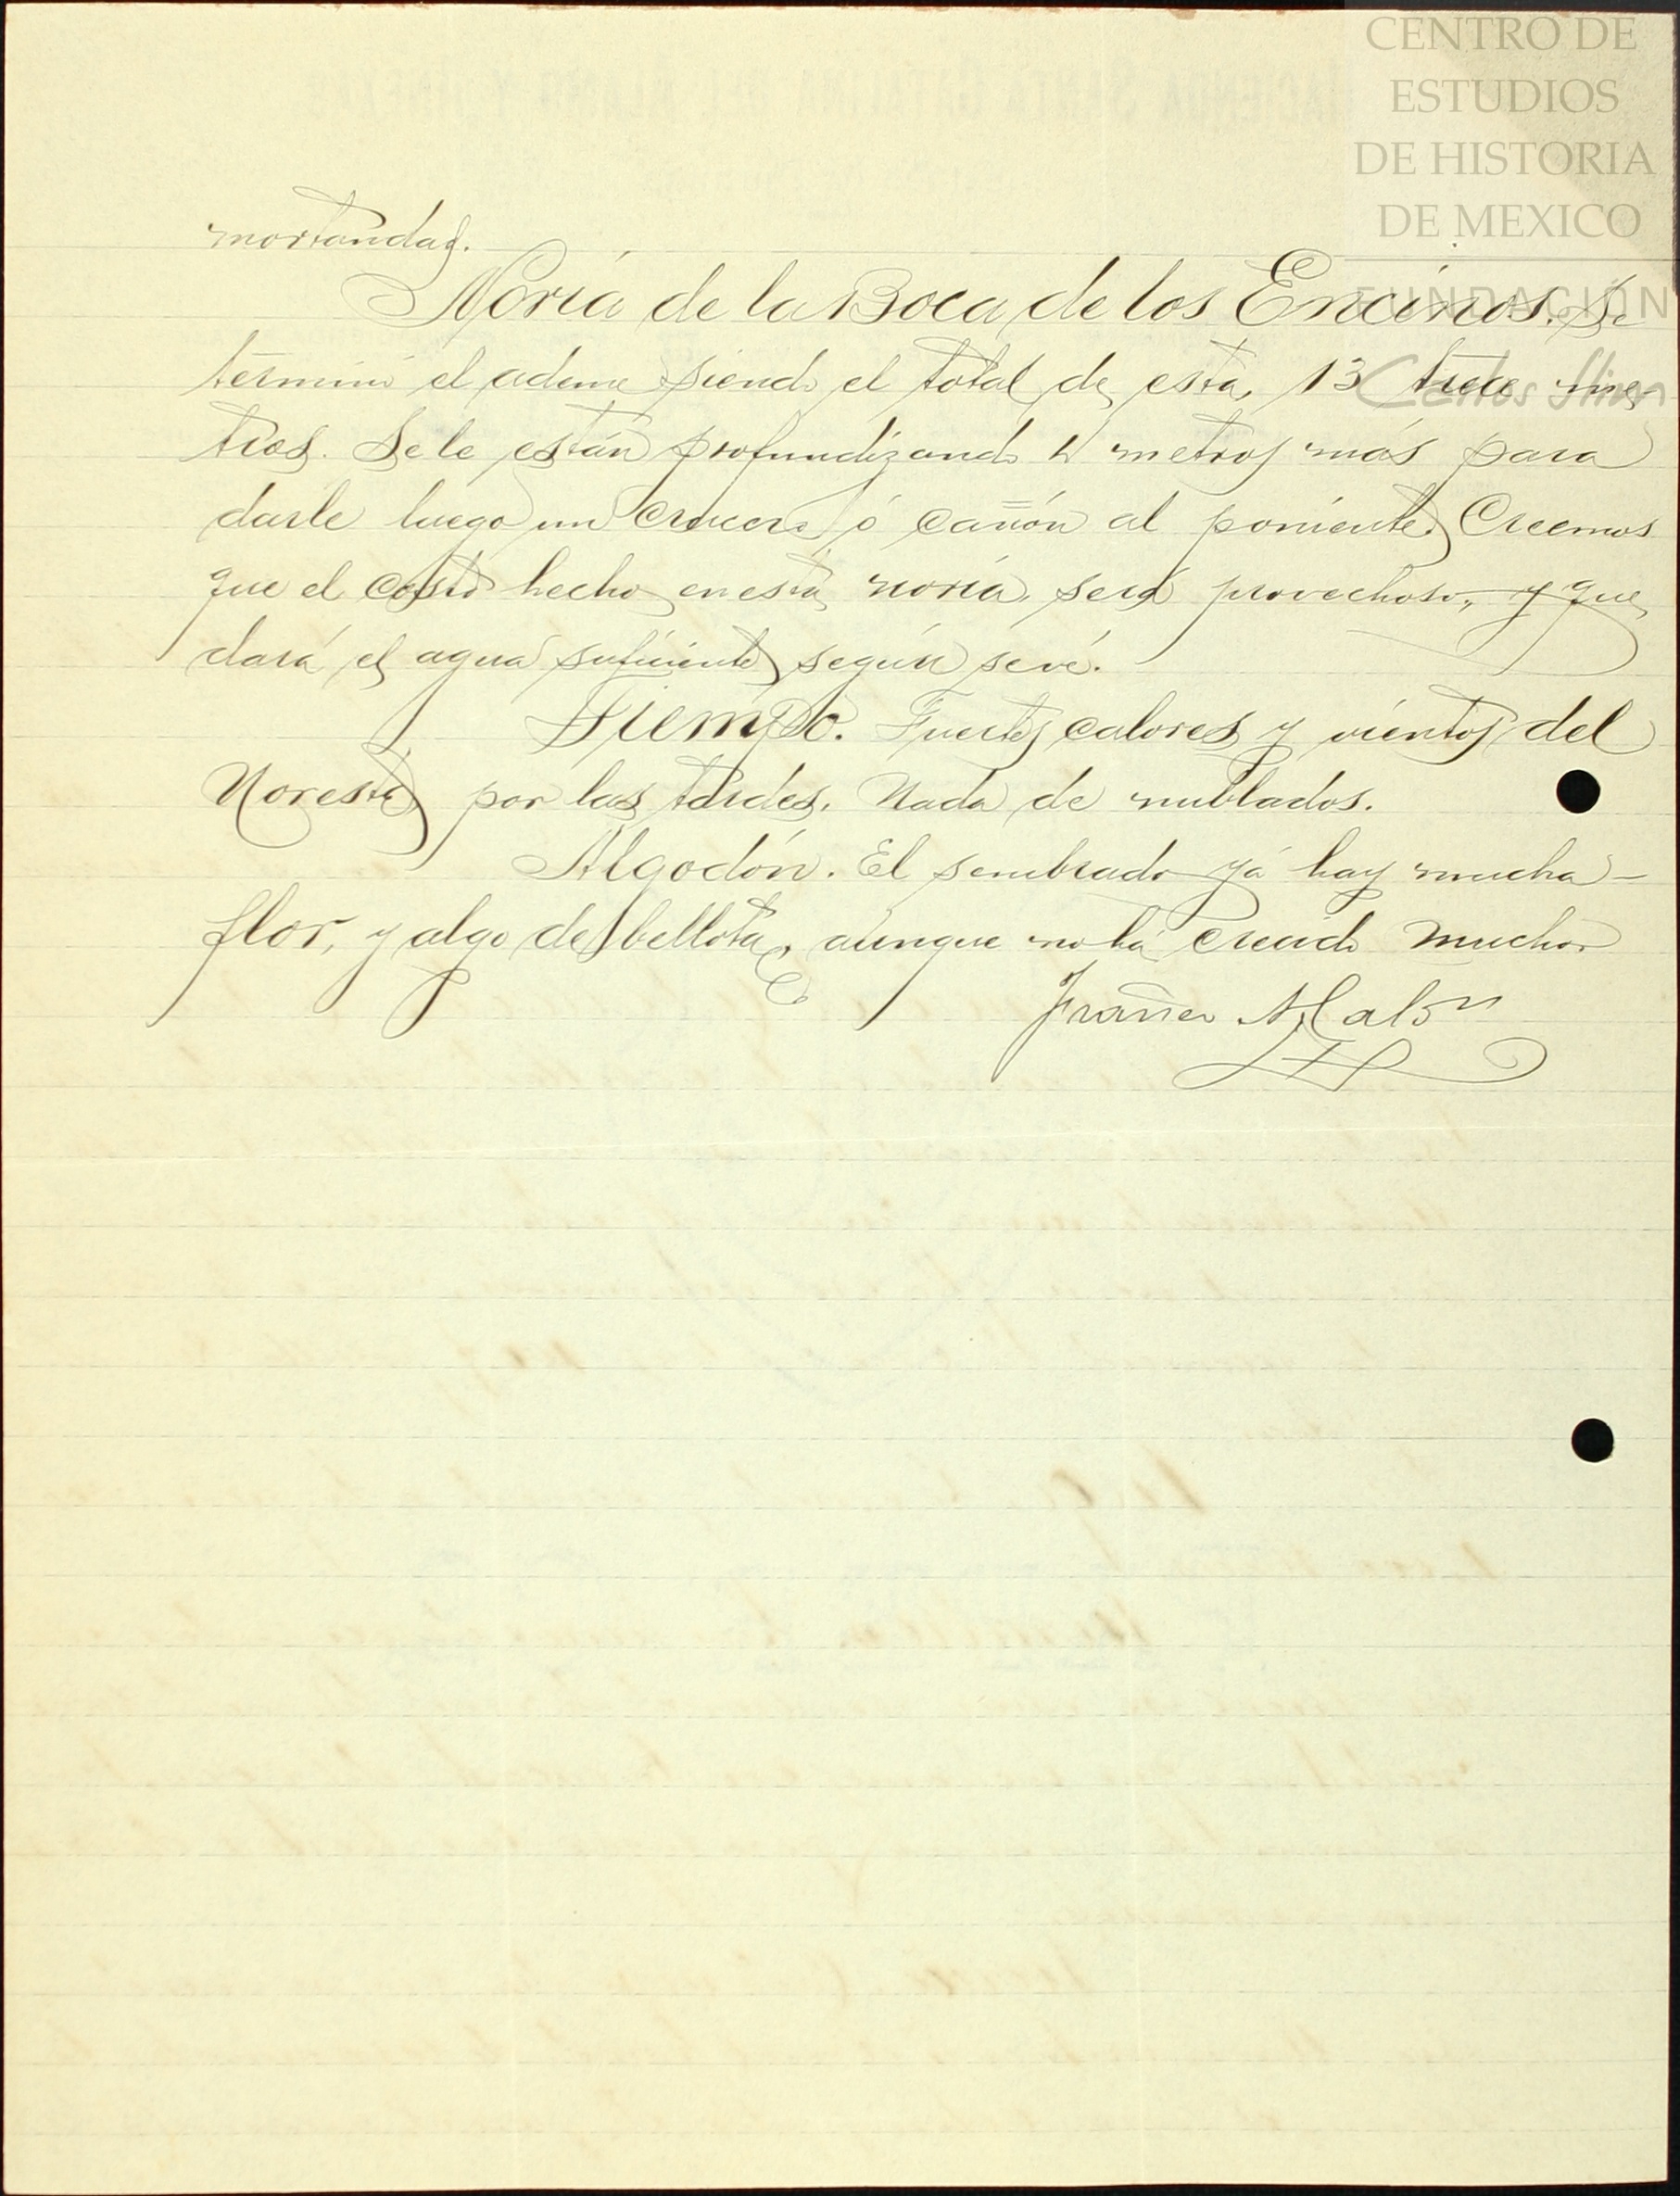 CENTRO DE
ESTUDIOS
DE HISTORIA
DE MEXICO
FUNDACIÓN
Carlos Slim
mortandad.
Noria de la Boca de los Encinos. Se
terminó el ademe siendo el total de esta, 13 trece me-
tros. Se le están profundizando 2 metros más para
darle luego un crucero ó cañón al poniente. Creemos
que el costo hecho en esta noria, será provechoso, y que
dará el agua suficiente según se vé.
Tiempo. Fuertes calores y vientos del
Noreste por las tardes. Nada de nublados.
Algodón. El sembrado yá hay mucha
flor, y algo de bellota, aunque no há crecido mucho.